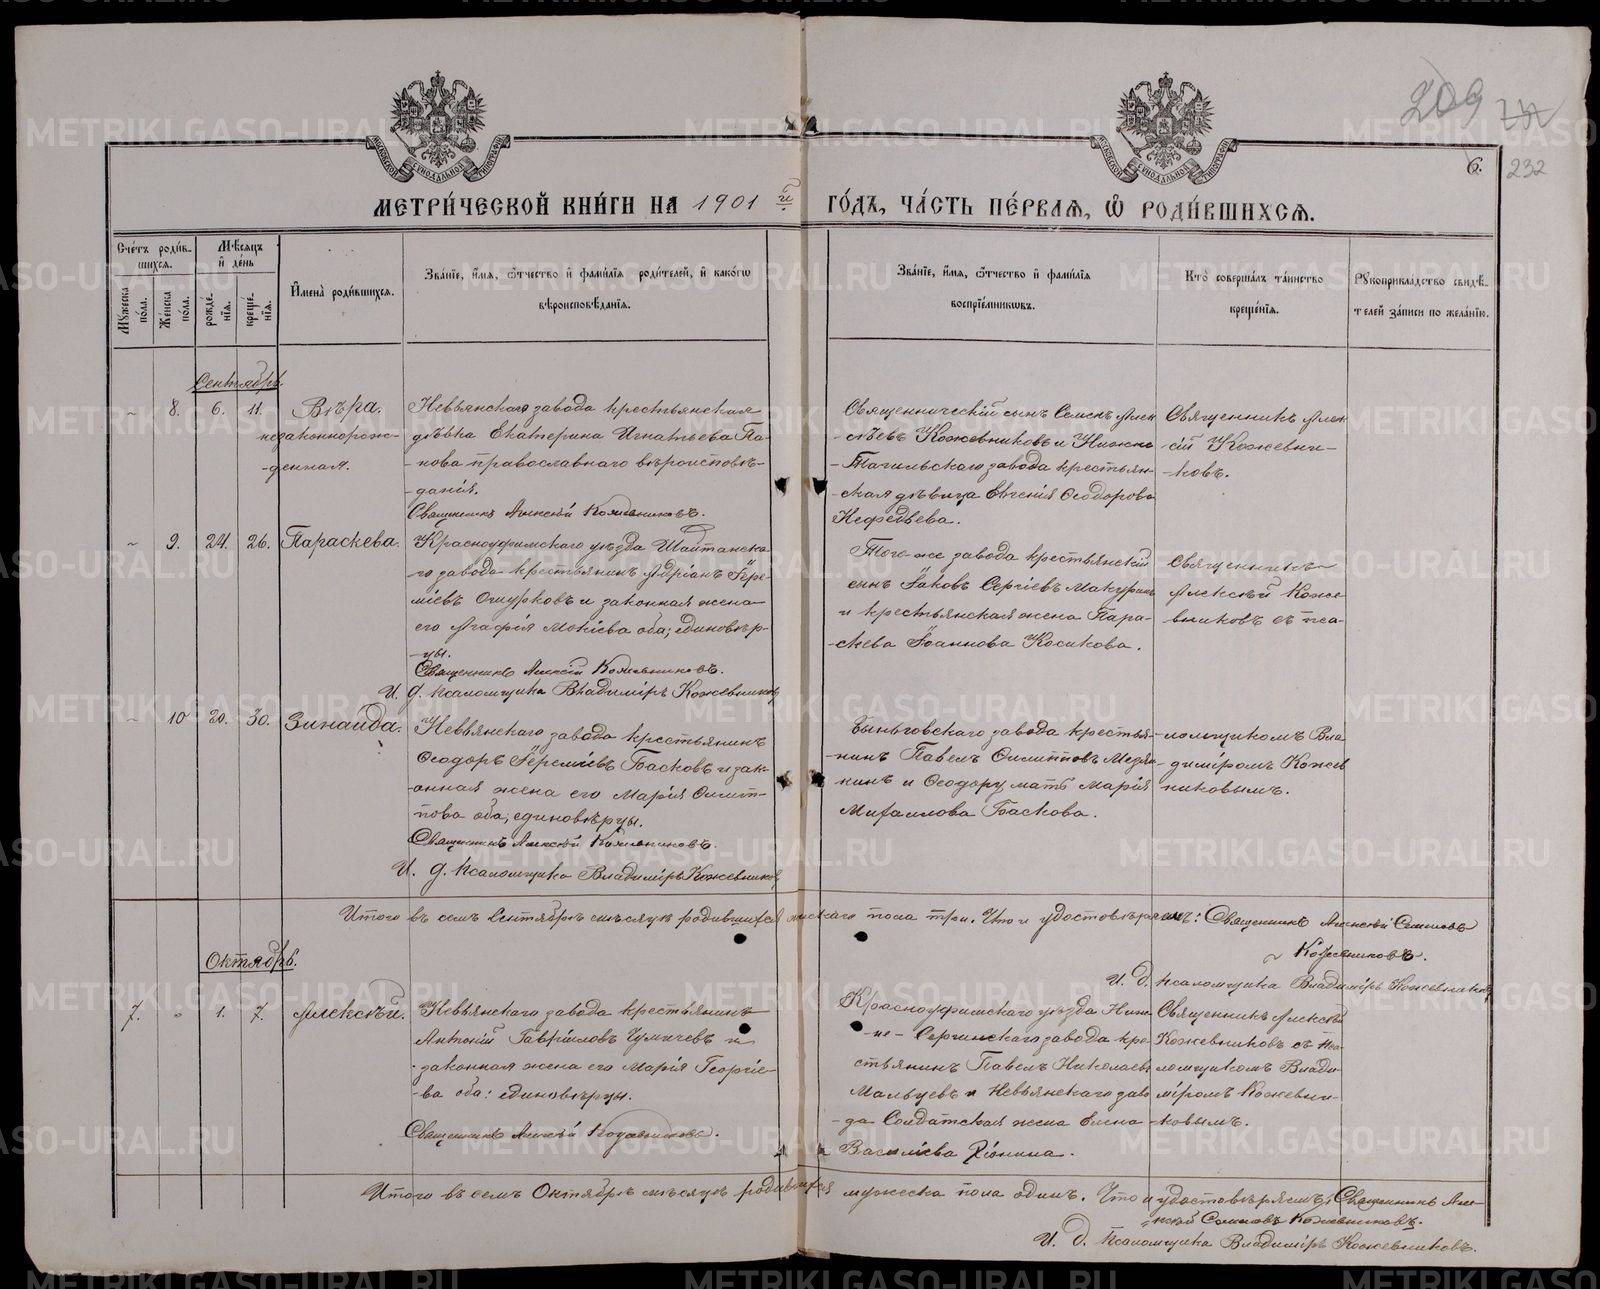 209
232
6.
МЕТРИ́ЧЕСКОЙ КНИ́ГИ НА 1901 й ГО́ДЪ, ЧА́СТЬ ПЕ́РВАЯ, Ѿ РОДИ́ВШИХСЯ.
Сче́тъ роди́в-
шихся.
Мѣ́сяцъ
и де́нь
Мужеска по́ла.
Же́нска по́ла.
рожде́-
нїя.
креще́-
нїя.
И҆мена̀ роди́вшихся.
Зва́нїе, и҆́мя, ѿтчество и҆ фами́лїя роди́телей, и҆ како́гѡ
вѣроисповѣ́данїя.
Зва́нїе, и҆́мя, ѿтчество и҆ фами́лїя
воспрїе́мникѡвъ.
Кто̀ соверша́лъ та́инство
креще́нїя.
Рукоприкла́дство свидѣ́-
телей за́писи по жела́нїю.
Сентябрь.
8. 6. 11. Вѣра.
незаконнорож-
-денная.
Невьянскаго завода крестьянская
дѣвка Екатерина Игнатьева Па-
-нова православнаго вѣроисповѣ-
-данія.
Священникъ Алексій Кожевниковъ.
Священническій сынъ Семенъ Алек
-сѣевъ Кожевниковъ и Нижне
-Тагильскаго завода крестьян-
-ская дѣвица Евгенія Ѳеодорова
Нефедьева.
Священникъ Алек
сій Кожевни-
-ковъ.
9. 24. 26. Параскева.
Красноуфимскаго уѣзда Шайтанска
-го завода крестьянинъ Адріанъ Іере-
міевъ Ошурковъ и законная жена
его Агафія Мокіева оба, единовѣр-
-цы.
Священникъ Алексій Кожевниковъ.
И. д. псаломщика Владиміръ Кожевниковъ
Того-же завода крестьянскій
сынъ Іаковъ Сергіевъ Макуринъ
и крестьянская жена Пара-
-скева Іоаннова Косикова.
Священникъ
Алексѣй Коже
вниковъ съ пса-
10 20. 30. Зинаида.
Невьянскаго завода крестьянинъ
Ѳеодоръ Іереміевъ Басковъ и зак-
-онная жена его Марія Филип-
пова оба, единовѣрцы.
Священникъ Алексій Кожевниковъ.
И. д. псаломщика Владиміръ Кожевниковъ
Быньговскаго завода крестья-
-нинъ Павелъ Филипповъ Медян-
-кинъ и Ѳеодору мать Марія
Михаилова Баскова.
-ломщикомъ Вла
-диміромъ Кожев
никовымъ.
Итого въ семъ Сентябрѣ мѣсяцѣ родившихся женскаго пола три. Что и удостовѣряемъ: Священникъ Алексѣй Семеновъ
Кожевниковъ.
И. д. псаломщика Владиміръ Кожевниковъ
Октябрь.
7. 1. 7. Алексѣй.
Невьянскаго завода крестьянинъ
Антоній Гавріиловъ Чумичевъ и
законная жена его Марія Георгіе-
-ва оба: единовѣрцы.
Священникъ Алексѣй Кожевниковъ.
Красноуфимскаго уѣзда Ниж
-не-Сергинскаго завода кре-
стьянинъ Павелъ Николаевъ
Мальцевъ и Невьянскаго заво
-да Солдатская жена Елена
Василіева Хіонина.
Священникъ Алексѣй
Кожевниковъ съ пса-
ломщикомъ Влади-
міромъ Кожевни-
-ковымъ.
Итого въ семъ Октябрѣ мѣсяцѣ родившихся мужеска пола одинъ. Что и удостовѣряемъ: Священникъ Але-
ксѣй Семеновъ Кожевниковъ.
И. д. Псаломщика Владиміръ Кожевниковъ.